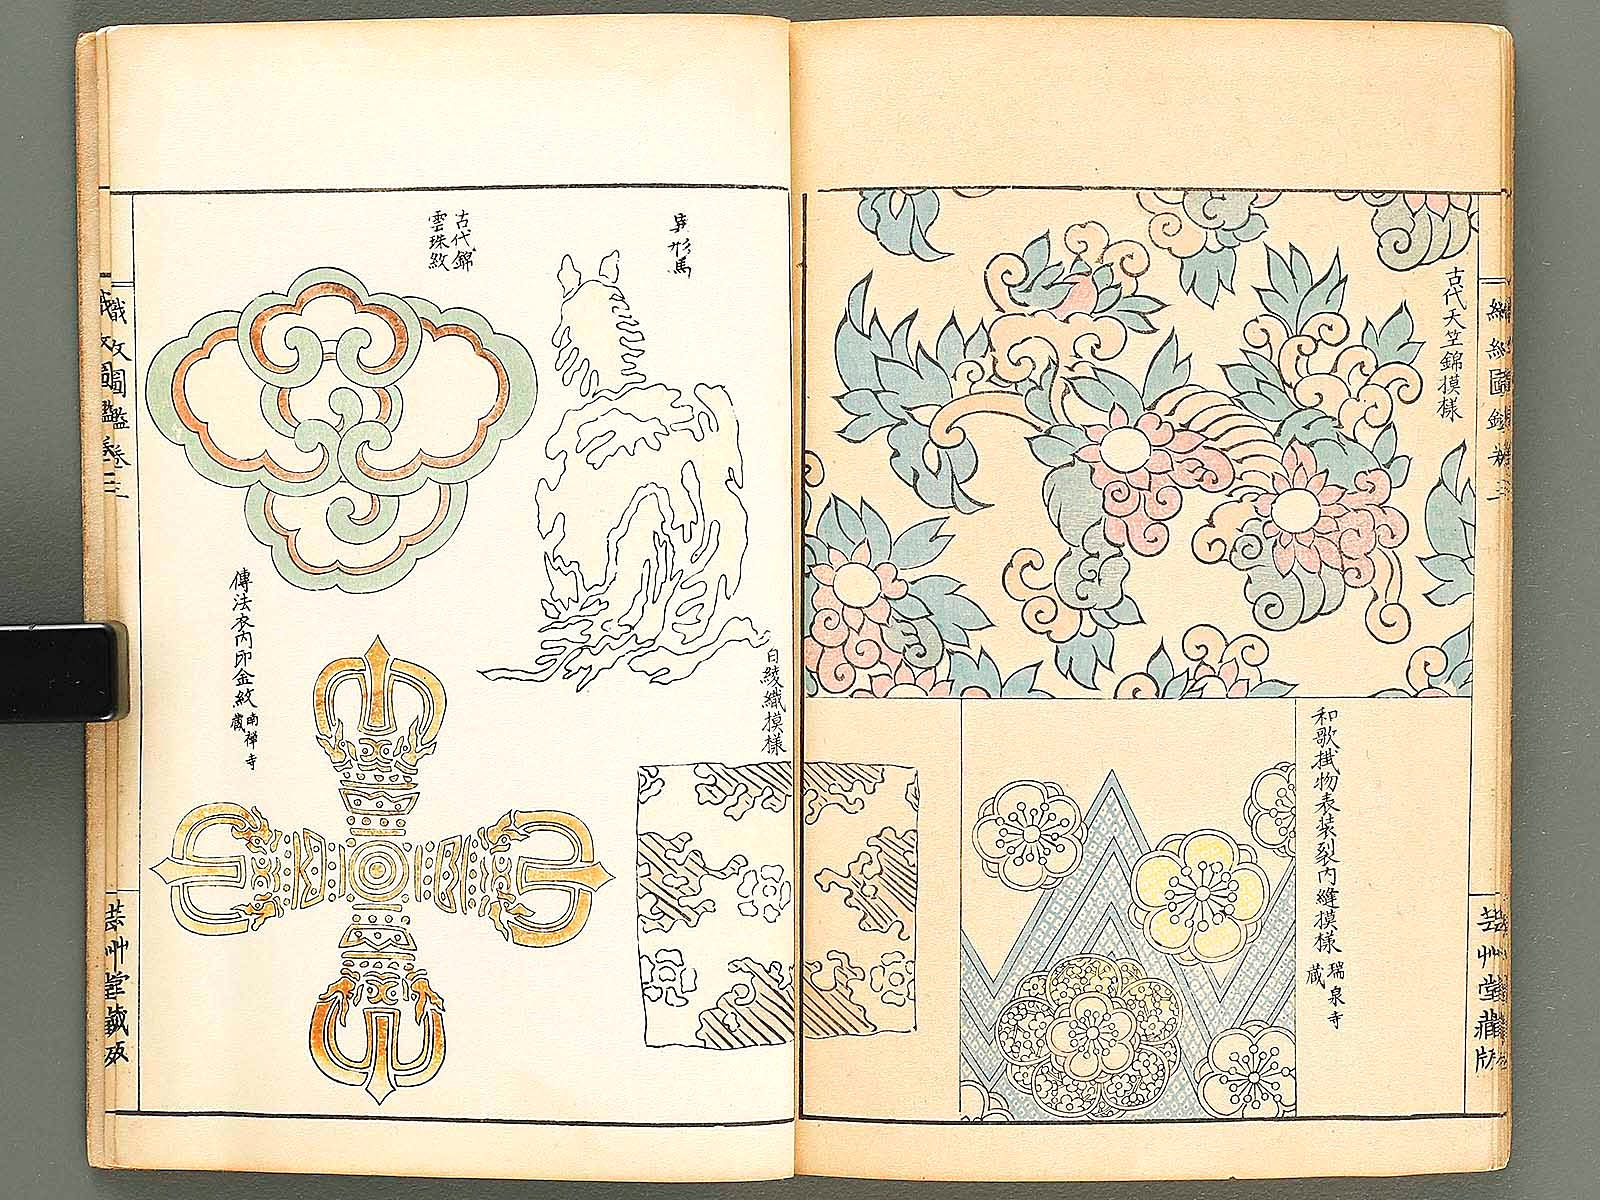 古代天竺錦摸樣
和歌掛物表装裂内縫摸様
瑞泉寺
蔵
芸艸堂藏版
異形馬
白綾織摸様
古代錦
雲珠紋
傳法衣内印金紋
南禅寺
蔵
織文圖鑑 卷三
芸艸堂藏版